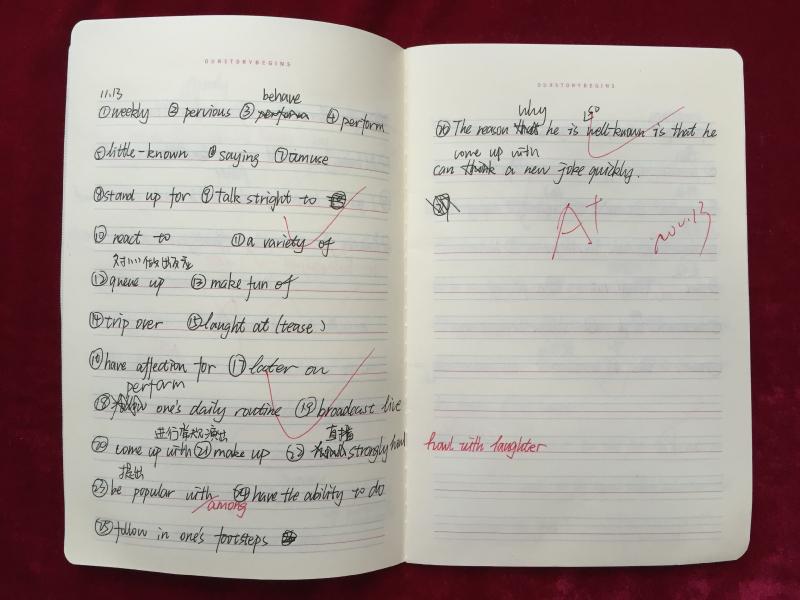 OURSTORYBEGINS
11.13
behave
①weekly ②pervious ③perform ④perform
⑤little-known ⑥saying ⑦amuse
⑧stand up for ⑨talk stright to
⑩react to ⑪a variety of
对…做出反应
⑫queue up ⑬make fun of
⑭trip over ⑮laught at (tease)
⑯have affection for ⑰later on
perform
⑱ one's daily routine ⑲broadcast live
进行常规演出 直播
⑳come up with ㉑make up ㉒ strongly howl
提出
㉓be popular with ㉔have the ability to do
among
㉕follow in one's footsteps
OURSTORYBEGINS
why so
㉖The reason that he is well-known is that he
come up with
can think a new joke quickly.
A+
Nov.13
howl with laughter